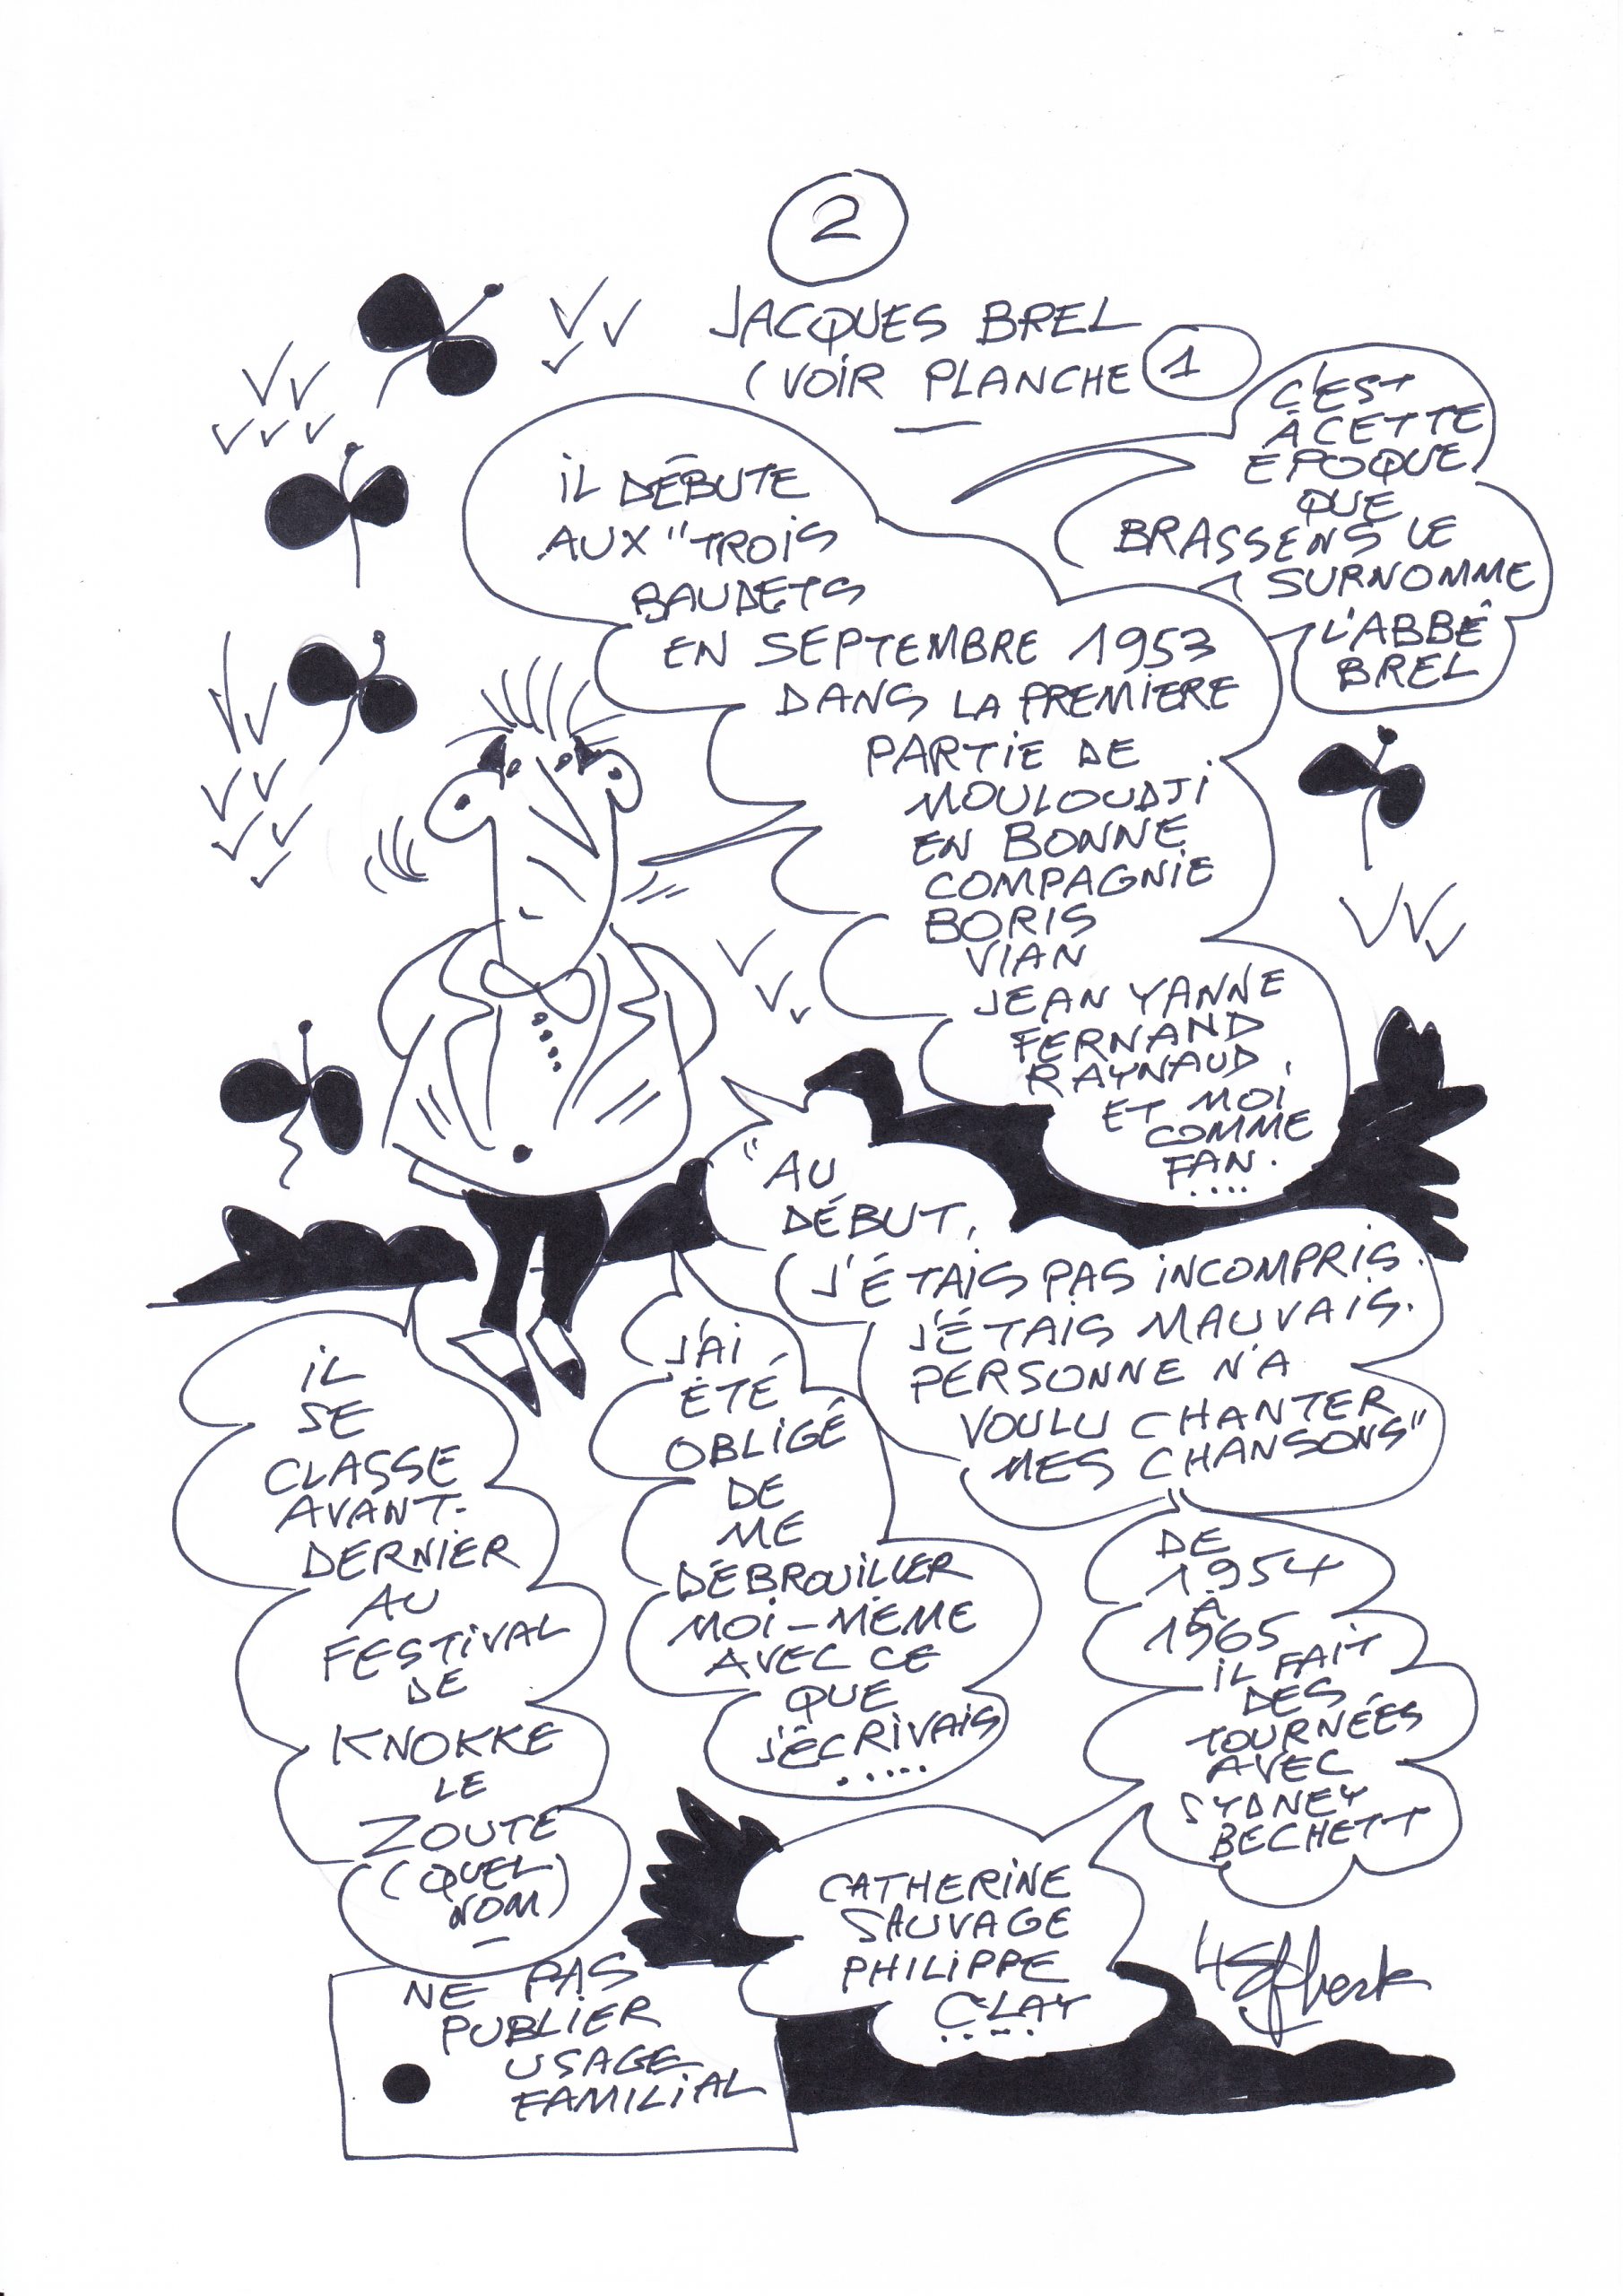 2
JACQUES BREL
(VOIR PLANCHE 1
IL DÉBUTE
AUX "TROIS
BAUDETS
EN SEPTEMBRE 1953
DANS LA PREMIERE
PARTIE DE
MOULOUDJI
EN BONNE
COMPAGNIE
BORIS
VIAN
JEAN YANNE
FERNAND
RAYNAUD,
ET MOI
COMME
FAN.
....
C'EST
À CETTE
ÉPOQUE
QUE
BRASSENS LE
SURNOMME
L'ABBÉ
BREL
"AU
DÉBUT,
J'ÉTAIS PAS INCOMPRIS.
J'ÉTAIS MAUVAIS.
PERSONNE N'A
VOULU CHANTER
MES CHANSONS"
J'AI
ÉTÉ
OBLIGÉ
DE
ME
DÉBROUILLER
MOI-MÊME
AVEC CE
QUE
J'ÉCRIVAIS
.....
IL
SE
CLASSE
AVANT-
DERNIER
AU
FESTIVAL
DE
KNOKKE
LE
ZOUTE
(QUEL
NOM)
DE
1954
À
1965
IL FAIT
DES
TOURNÉES
AVEC
SYDNEY
BECHETT
CATHERINE
SAUVAGE
PHILIPPE
CLAY
.....
NE PAS
PUBLIER
USAGE
FAMILIAL